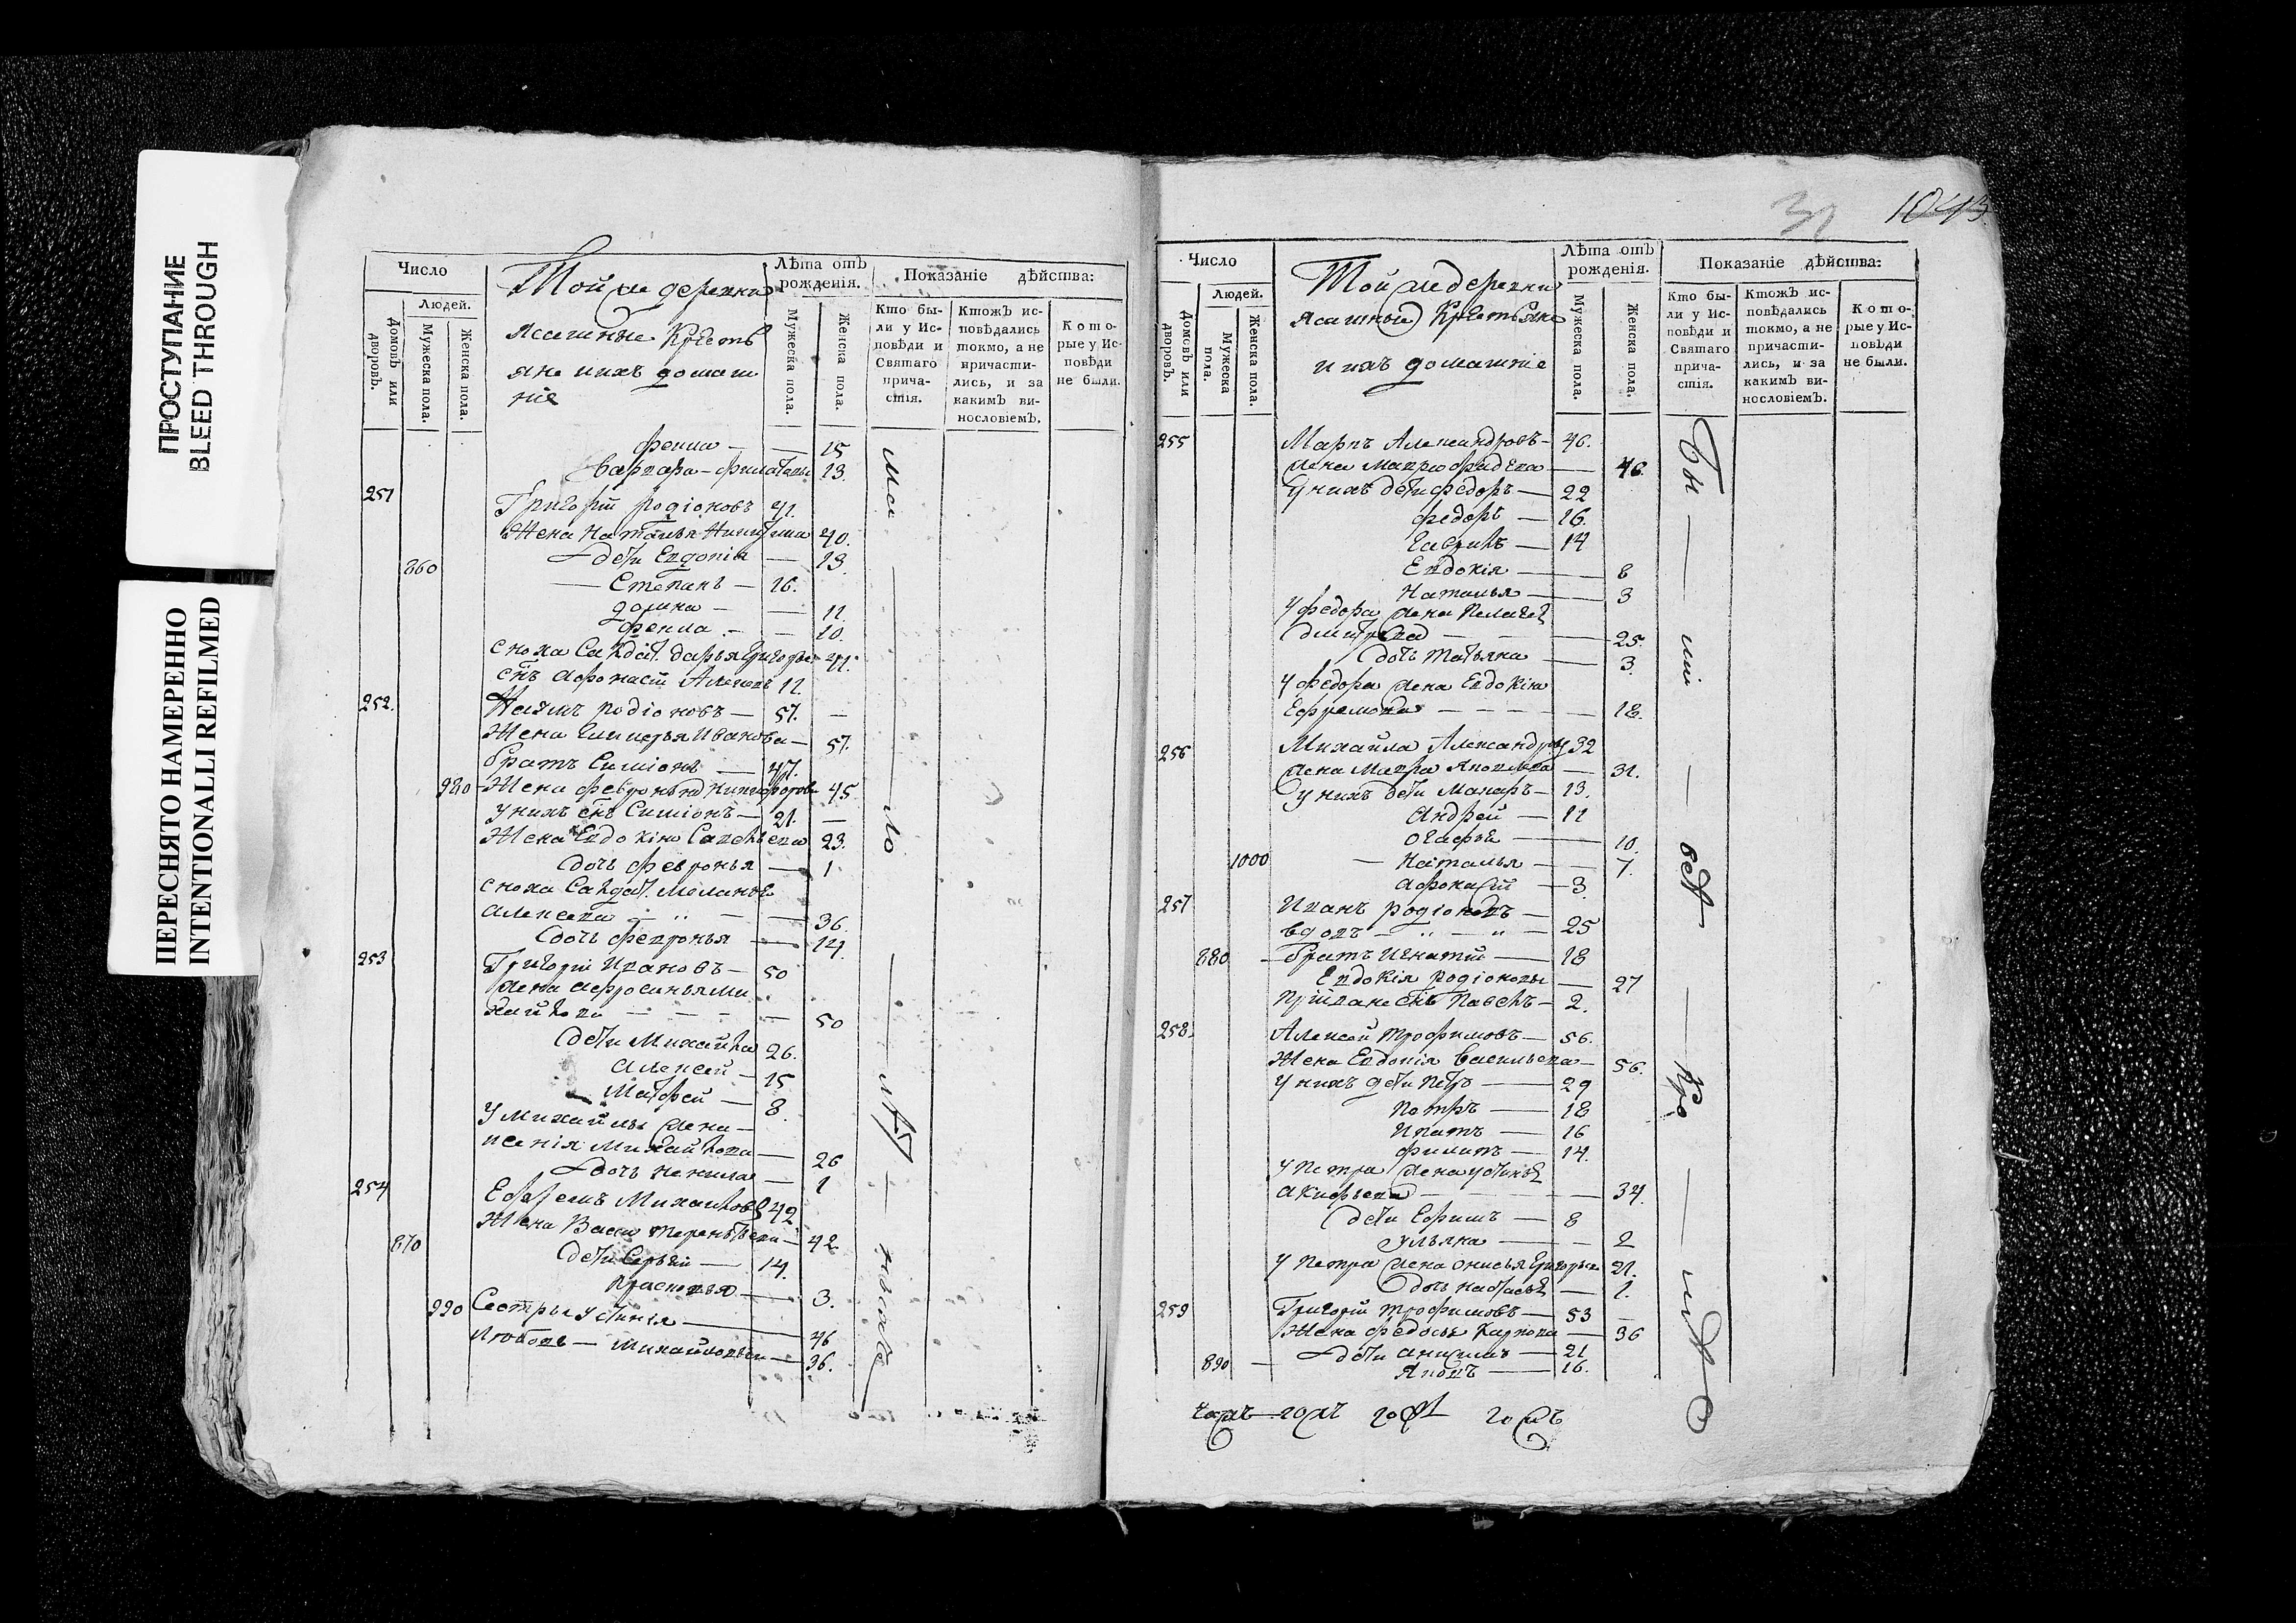 ПРОСТУПАНИЕ
BLEED THROUGH
ПЕРЕСНЯТО НАМЕРЕННО
INTENTIONALLI REFILMED
Число
Домовъ или дворовъ.
Людей.
Мужеска пола.
Женска пола.
Той же деревни
ясашные Кресть
яне и ихъ домаш
ніе
Лѣта отъ рожденія.
Мужеска пола.
Женска пола.
Показаніе дѣйства:
Кто бы-
ли у Ис-
повѣди и
Святаго
прича-
стія.
Ктожъ ис-
повѣдались
токмо, а не
причасти-
лись, и за
какимъ ви-
нословіемъ.
Кото-
рые у Ис-
повѣди
не были.
Фекла — — 15
Варвара — 13.
251 Григорій Родіоновъ 41.
Жена Наталья 40.
дети Евдокія — 13
860 — Степанъ — 16.
Домна — — 11.
Фекла — — 10.
сноха Салдат. Дарья Григорье 41.
снъ Афонасій Алексевъ 11.
252. Родіоновъ — 57. —
Жена Гликерья Иванова — 57.
братъ Симіонъ — 47.
980 Жена Февронья Никифорова 45
У нихъ снъ Симіонъ — 21. —
Жена Евдокія Савельева 23.
дочь Февронья — 1
сноха Салдат. Меланья
Алексева — " — 36.
дочь Февронья — 14.
253 Григорій Ивановъ — 50
Жена Афросинья Ми
хайлова — — — 50
дети Михайла 26.
Алексей — 15
Матфей — 8.
У Михайлы жена —
Ксенія Михайлова — 26
дочь — 1
254 Ефремъ Михайловъ 42
Жена Васа Терентьева — 42
870 дети Сергей — 14.
Прасковья — 3.
990 Сестры Устинья — 46
Любовь — Михайловы — 36.
31
1043
Число
Домовъ или дворовъ.
Людей.
Мужеска пола.
Женска пола.
Той же деревни
ясашные Крестьяне
и ихъ домашніе
Лѣта отъ рожденія.
Мужеска пола.
Женска пола.
Показаніе дѣйства:
Кто бы-
ли у Ис-
повѣди и
Святаго
прича-
стія.
Ктожъ ис-
повѣдались
токмо, а не
причасти-
лись, и за
какимъ ви-
нословіемъ.
Кото-
рые у Ис-
повѣди
не были.
255 Маркъ Александровъ — 46.
жена Мавра Фадеева — 46.
У нихъ дети Федоръ — 22
Федоръ — 16.
Гаврилъ — 14
Евдокія — 8
Наталья — 3
У Федора жена Пелагея
Дмитрева — — 25.
дочь Татьяна — 3.
У Федора жена Евдокія
Ефремова — — — — 18.
256 Михайла Александровъ 32
жена Мавра Яковлева — 31.
У нихъ дети Макаръ — 13.
Андрей — 11
Огафья — 10.
1000 — Наталья — 7.
Афонасій — 3.
257 Иванъ Родіоновъ —
вдовъ — " — " — 25
880 — братъ Игнатій — 18
Евдокія Родіонова — 27
снъ Павелъ — 2.
258. Алексей Трофимовъ — 56.
Жена Евдокія Васильева — 56.
У нихъ дети Петръ — 29
Петръ — 18
Ипатъ — 16
Филипъ — 14.
У Петра жена Устинья
Акифьева — — 34.
дети Ефимъ — 8
Ульяна — — 2
У Петра жена Онисья Григорьева 21.
дочь Настасья — 1.
259 Григорій Трофимовъ — 53 —
Жена Федосья Карпова — 36
дети Анисимъ — 21
890 — Яковъ — 16.